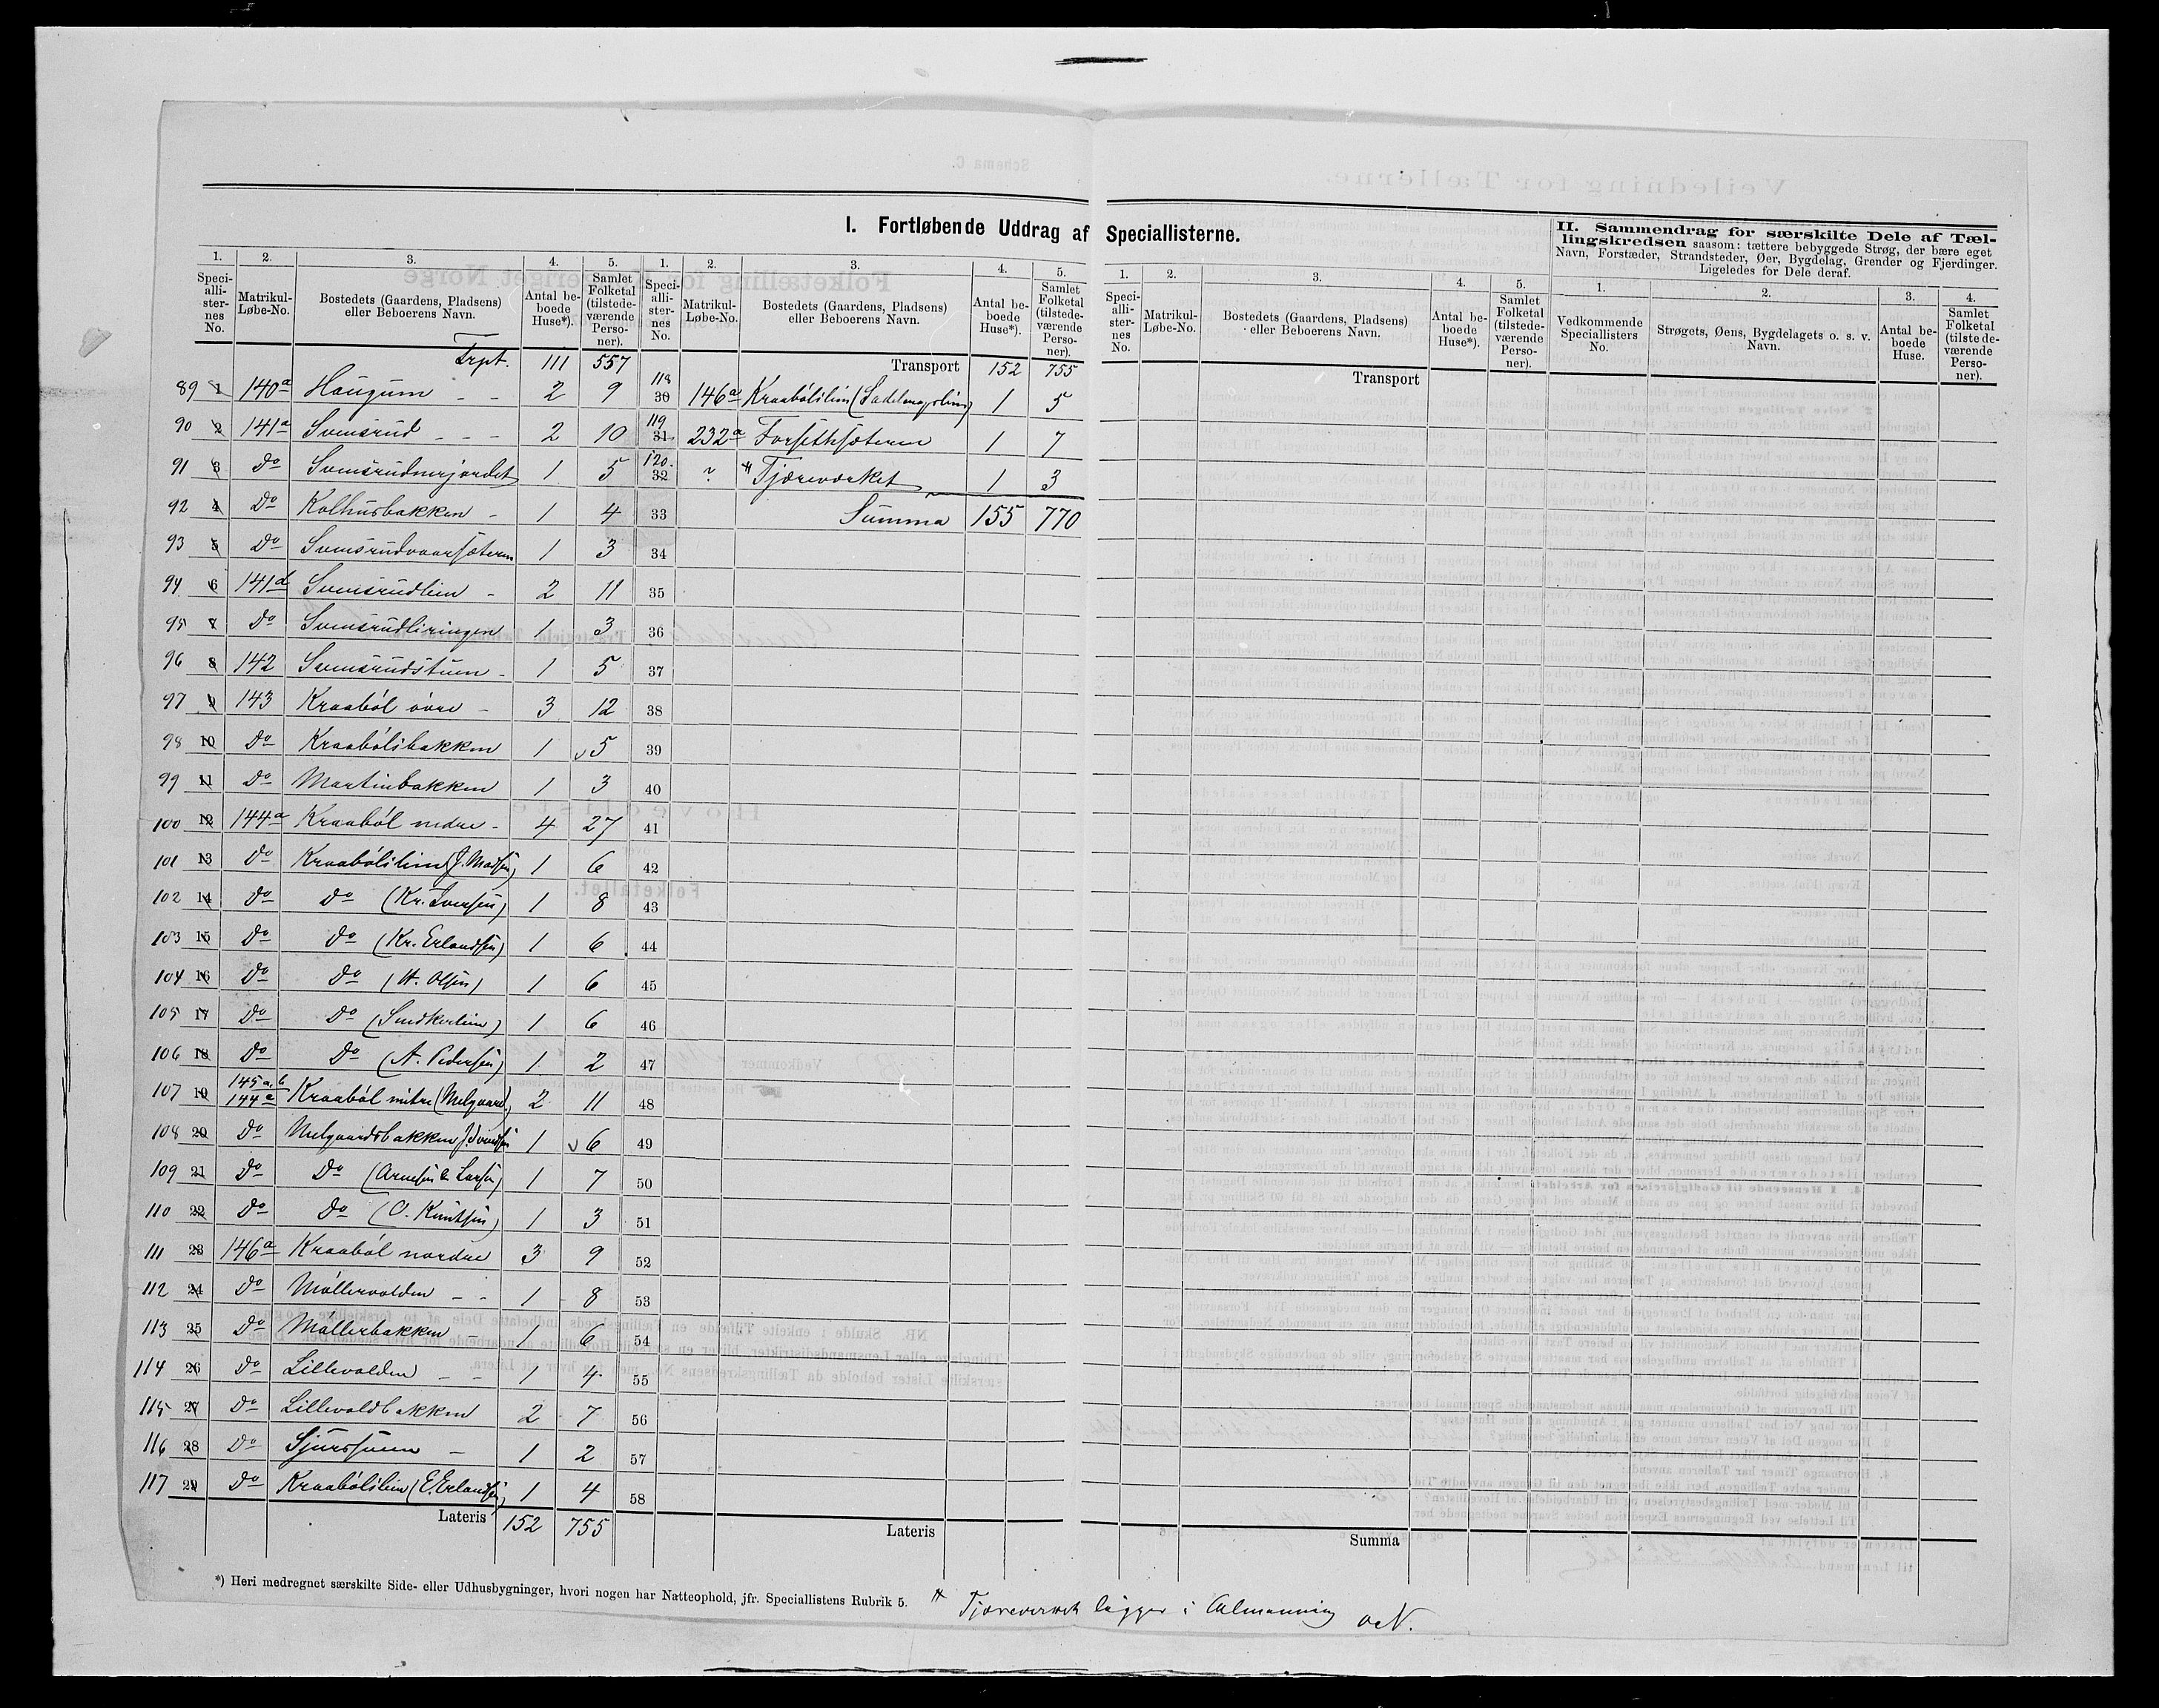 I. Fortløbende Uddrag af Speciallisterne.
1. 2. 3. 4. 5.
Speciallisternes No. Matrikul-Løbe-No. Bostedets (Gaardens, Pladsens) eller Beboerens Navn. Antal beboede Huse*). Samlet Folketal (tilstedeværende Personer).
Trpt. 111 557
89 1 140a Haugum - - 2 9
90 2 141a Svensrud - - - 2 10
91 3 Do Svensrudnerjordet 1 5
92 4 Do Kolhusbakken - 1 4
93 5 Do Svensrudvaarsæteren 1 3
94 6 141d Svensrudlien - 2 11
95 7 Do Svensrudliringen 1 3
96 8 142 Svensrudstuen - 1 5
97 9 143 Kraabøl øvre - 3 12
98 10 Do Kraabølsbakken 1 5
99 11 Do Martinbakken 1 3
100 12 144a Kraabøl nedre - 4 27
101 13 Do Kraabølslien (J. Madsen) 1 6
102 14 Do Do (Kr. Iversen) 1 8
103 15 Do Do (Kr. Erlandsen) 1 6
104 16 Do Do (H. Olsen) 1 6
105 17 Do Do 1 6
106 18 Do Do (A. Pedersen) 1 2
107 19 145a,b 144c Kraabøl mitre (Melgaard) 2 11
108 20 Do Melgaardsbakken 1 6
109 21 Do Do (Arnesen & Larsen) 1 7
110 22 Do Do (O. Knutsen) 1 3
111 23 146a Kraabøl nordre 3 9
112 24 Do Møllervolden - - 1 8
113 25 Do Møllerbakken - 1 6
114 26 Do Lillevolden - - 1 4
115 27 Do Lillevoldbakken 2 7
116 28 Do Sjursstuen - 1 2
117 29 Do Kraabølslien (E. Erlandsen) 1 4
Lateris 152 755
1. 2. 3. 4. 5.
Speciallisternes No. Matrikul-Løbe-No. Bostedets (Gaardens, Pladsens) eller Beboerens Navn. Antal beboede Huse*). Samlet Folketal (tilstedeværende Personer).
Transport 152 755
118 30 146a Kraabølslien 1 5
119 31 232a Forsethsæteren 1 7
120. 32 ? Tjæreværket 1 3
33 Summa 155 770
34
35
36
37
38
39
40
41
42
43
44
45
46
47
48
49
50
51
52
53
54
55
56
57
58
Lateris
1. 2. 3. 4. 5.
Speciallisternes No. Matrikul-Løbe-No. Bostedets (Gaardens, Pladsens) eller Beboerens Navn. Antal beboede Huse*). Samlet Folketal (tilstedeværende Personer).
Transport
Summa
II. Sammendrag for særskilte Dele af Tællingskredsen saasom: tættere bebyggede Strøg, der bære eget
Navn, Forstæder, Strandsteder, Øer, Bygdelag, Grender og Fjerdinger.
Ligeledes for Dele deraf.
1. 2. 3. 4.
Vedkommende Speciallisters No. Strøgets, Øens, Bygdelagets o. s. v. Navn. Antal beboede Huse. Samlet Folketal (tilstedeværende Personer).
*) Heri medregnet særskilte Side- eller Udhusbygninger, hvori nogen har Natteophold, jfr. Speciallistens Rubrik 5.
Tjæreværket ligger i Almenning